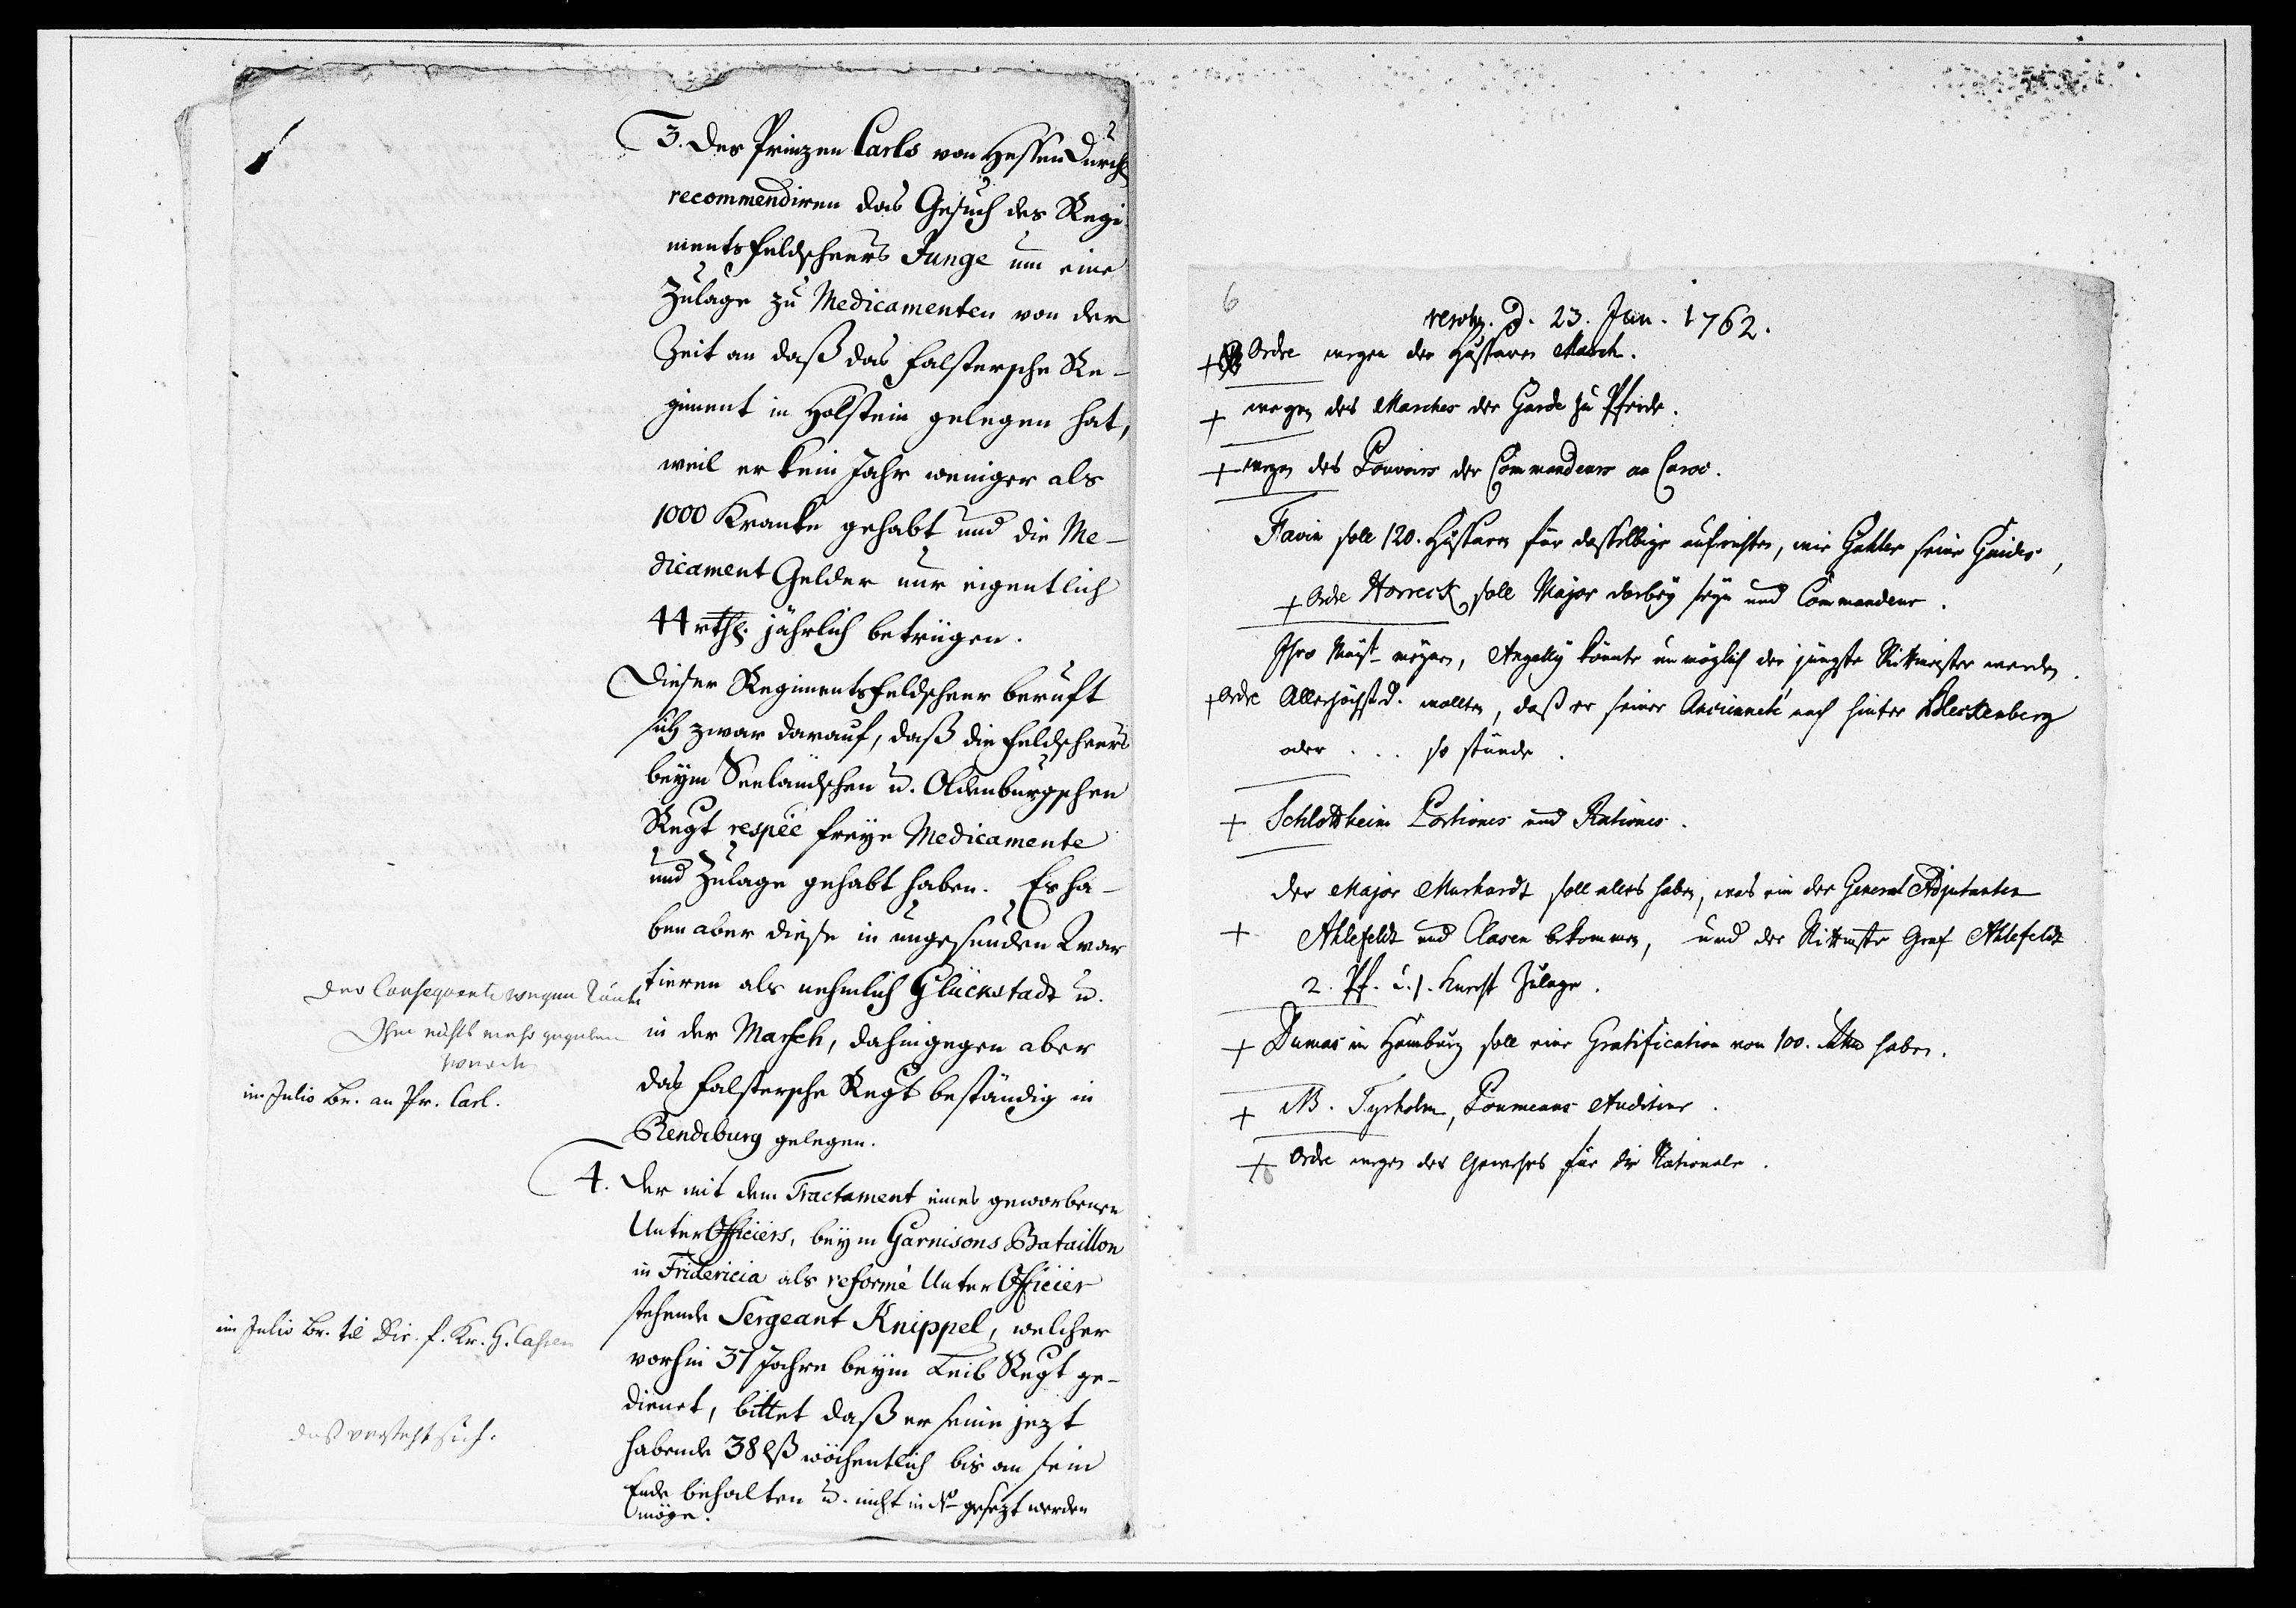 3. Des Prinzen Carls von Hessen Durchl
recommendiren das Gesuch des Regi
mentsfeldscheers Junge um eine
Zulage zu Medicamenten von der
Zeit an daß das Falstersche Re-
giment in Holstein gelegen hat,
weil er kein Jahr weniger als
1000 Kranke gehabt und die Me-
dicament Gelder nur eigentlich
44 rthl. jährlich betrügen.
Dieser Regimentsfeldscheer beruft
sich zwar darauf, daß die Feldscheers
beym Seeländschen u. Oldenburgschen
Regt respèe freye Medicamente
und Zulage gehabt haben. Es ha-
ben aber diese in ungesunden Qvar
tieren als nehmlich Glückstadt u.
in der Marsch, dahingegen aber
das Falstersche Regt beständig in
Rendsburg gelegen.
Der Conseqvente wegen könte
Ihm nichts mehr gegeben
werden
im Julio Br. an Pr. Carl.
4. Der mit dem Tractament eines geworbenen
Unter Officiers, beym Garnisons Bataillon
in Fridericia als reformè Unter Officier
stehende Sergeant Knippel, welcher
vorhin 37 Jahre beym Leib Regt ge-
dienet, bittet daß er seine jezt
habende 38 lß wöchentlich bis an sein
Ende behalten u. nicht in No gesezt werden
möge.
im Julio Br. til Dir. f. Kr. H. Cassen
das versteht sich.
6
d. 23. Jun. 1762.
+ Ordre wegen der Husaren Marsch.
+ wegen des Marches der Garde zu Pferde.
+ wegen des Pouvoirs der Commandeurs en Corps.
soll 120. Husaren für dasselbige aufrichten, wie Gahler seine Guides,
+ Ordre soll Major darbey seyn und Commandeur.
Ihro Mayst. Angelly könnte unmöglich der jüngste Rittmeister werden.
+ Ordre Allerhöchst d. wollten, daß er seiner Ancienneté nach hinter Bleckenberg
oder ... so stünde.
+ Schlottheim Portiones und Rationes.
Der Major Marhardt soll alles haben, was ein der General Adjutanten
+ Ahlefeldt und Clasen bekommen, und der Rittmstr Graf Ahlefeldt
2. Pf. u. 1. Knecht Zulage.
+ Dumas in Hamburg soll eine Gratification von 100. haben.
+ NB. Tyrholm, Auditeur.
+ Ordre wegen des Gewehrs für die Nationale.